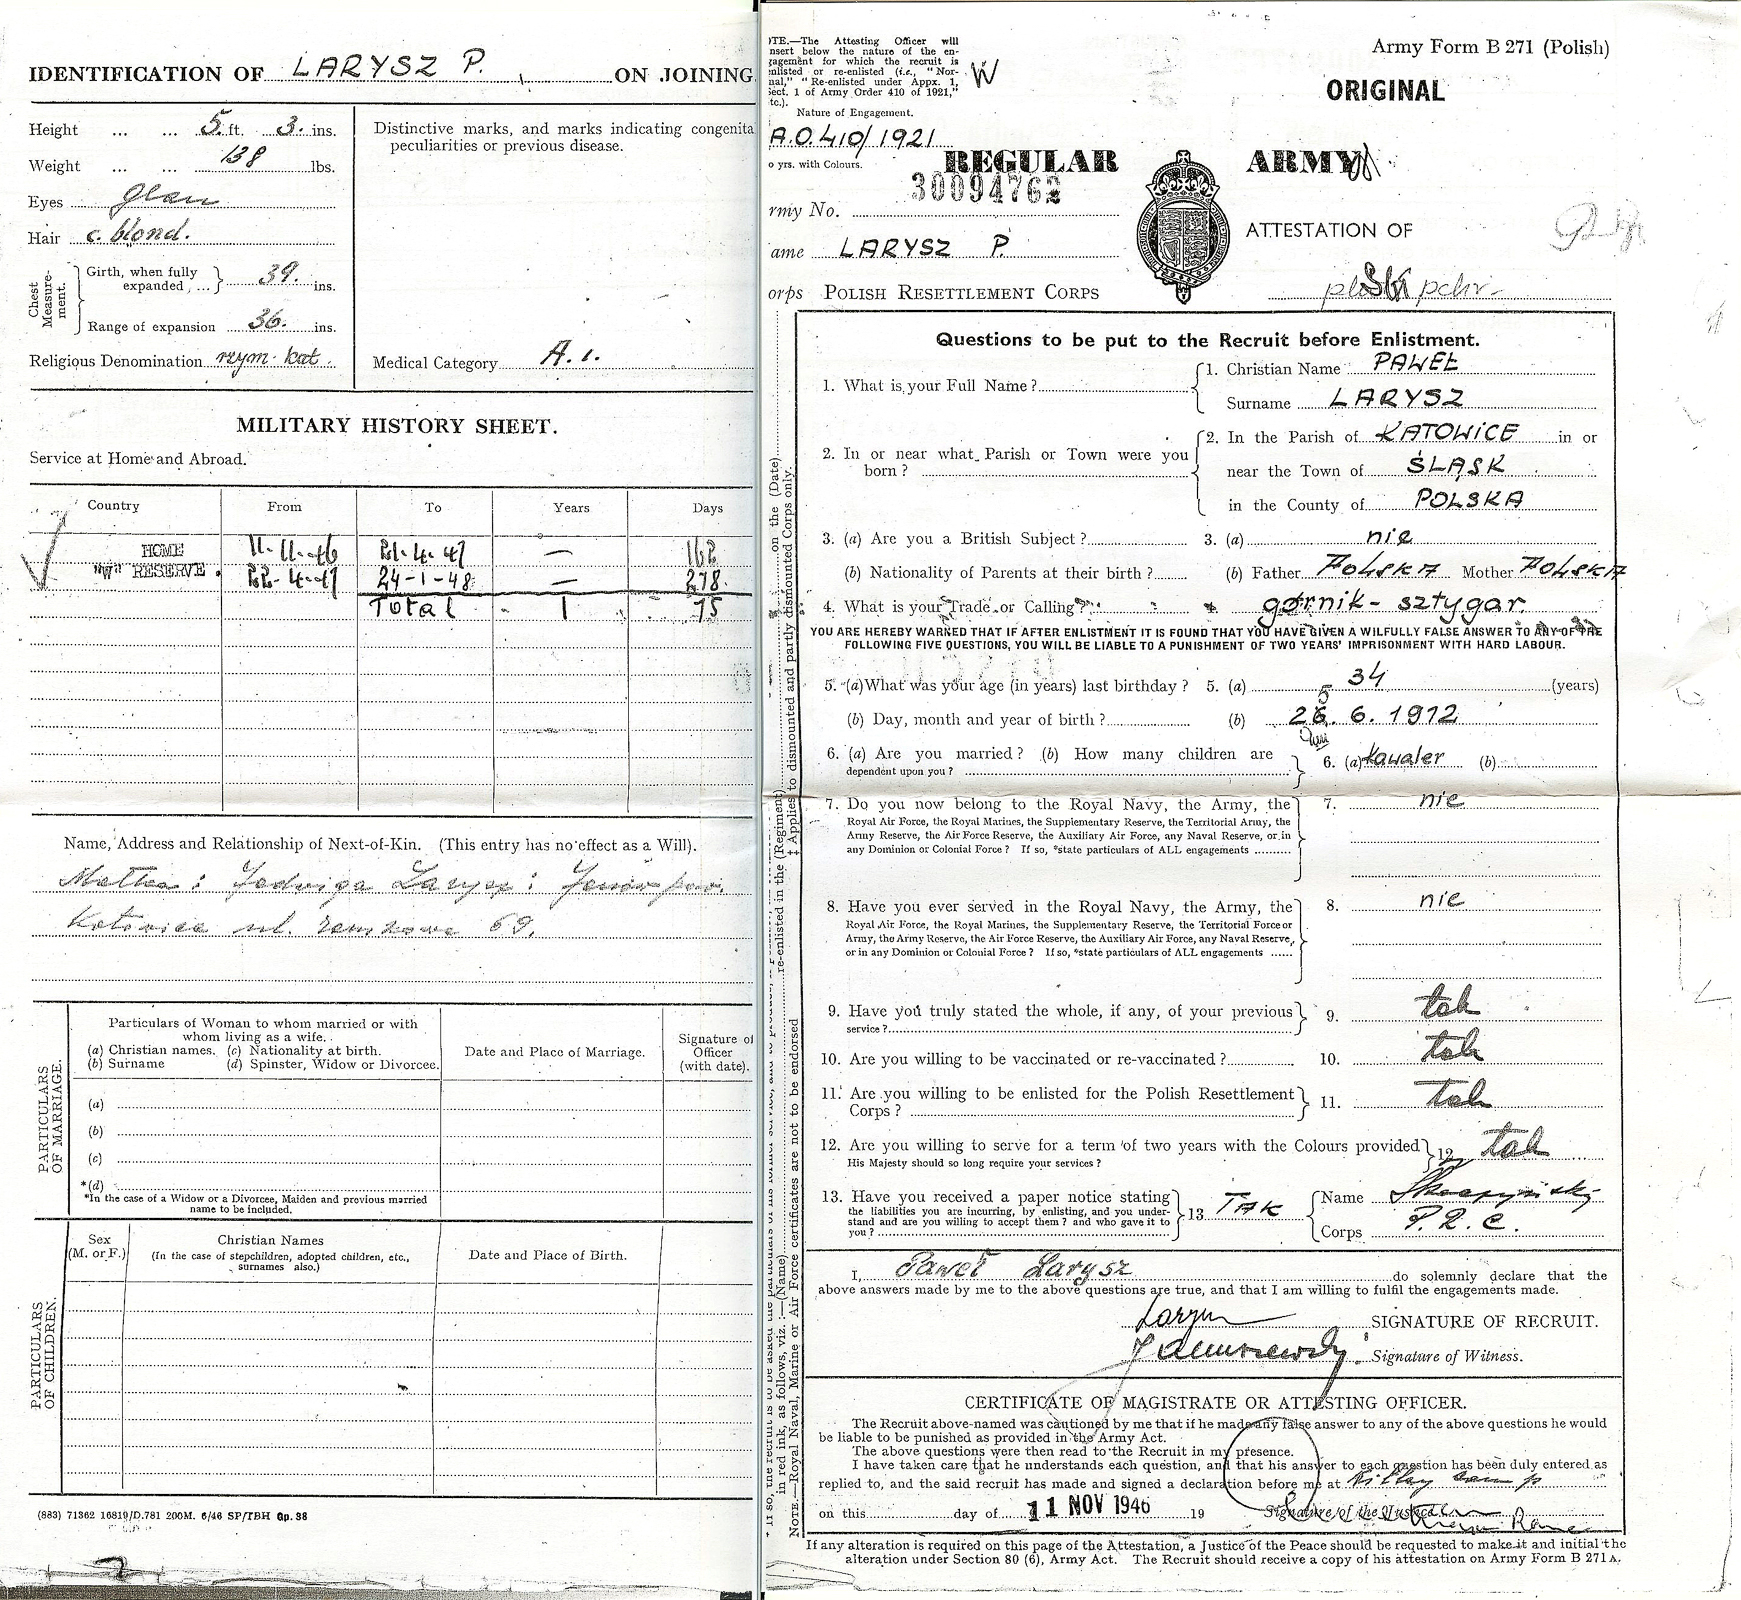 IDENTIFICATION OF LARYSZ P. ON JOINING
Height ... ... 5 ft. 3. ins.
Weight ... ... 138 lbs.
Eyes
Hair c. blond.
Chest Measurement.
Girth, when fully expanded, ... 39. ins.
Range of expansion 36. ins.
Religious Denomination rzym. kat.
Distinctive marks, and marks indicating congenita
peculiarities or previous disease.
Medical Category A. 1.
MILITARY HISTORY SHEET.
Service at Home and Abroad.
Country From To Years Days
HOME 11-11-46 21-4-47 — 162
"W" RESERVE. 22-4-47 24-1-48 — 278
Total - 1 75
Name, Address and Relationship of Next-of-Kin. (This entry has no effect as a Will).
Matka: Jadwiga Larysz: Janów pow.
Katowice ul. 69.
PARTICULARS OF MARRIAGE.
Particulars of Woman to whom married or with
whom living as a wife.
(a) Christian names. (c) Nationality at birth.
(b) Surname (d) Spinster, Widow or Divorcee.
Date and Place of Marriage.
Signature of
Officer
(with date).
(a)
(b)
(c)
*(d)
*In the case of a Widow or a Divorcee, Maiden and previous married
name to be included.
PARTICULARS OF CHILDREN.
Sex
(M. or F.)
Christian Names
(In the case of stepchildren, adopted children, etc.,
surnames also.)
Date and Place of Birth.
(883) 71362 16819/D.781 200M. 6/46 SP/TBH Gp. 38
OTE.—The Attesting Officer will
nsert below the nature of the en-
gagement for which the recruit is
nlisted or re-enlisted (i.e., "Nor-
nal," "Re-enlisted under Appx. 1,
Sect. 1 of Army Order 410 of 1921,"
tc.).
W
Nature of Engagement.
A.O.410/1921
o yrs. with Colours.
Army Form B 271 (Polish)
ORIGINAL
REGULAR ARMY
30094762
rmy No.
ame LARYSZ P.
ATTESTATION OF
orps POLISH RESETTLEMENT CORPS
Questions to be put to the Recruit before Enlistment.
1. What is your Full Name?
1. Christian Name PAWEŁ
Surname LARYSZ
2. In or near what Parish or Town were you
born?
2. In the Parish of KATOWICE in or
near the Town of ŚLĄSK
in the County of POLSKA
3. (a) Are you a British Subject? 3. (a) nie
(b) Nationality of Parents at their birth? (b) Father POLSKA Mother POLSKA
4. What is your Trade or Calling? górnik - sztygar
YOU ARE HEREBY WARNED THAT IF AFTER ENLISTMENT IT IS FOUND THAT YOU HAVE GIVEN A WILFULLY FALSE ANSWER TO ANY OF THE
FOLLOWING FIVE QUESTIONS, YOU WILL BE LIABLE TO A PUNISHMENT OF TWO YEARS' IMPRISONMENT WITH HARD LABOUR.
5. (a) What was your age (in years) last birthday? 5. (a) 34 (years)
5
(b) Day, month and year of birth? (b) 26. 6. 1912
6. (a) Are you married? (b) How many children are
dependent upon you?
6. (a) kawaler (b)
7. Do you now belong to the Royal Navy, the Army, the
Royal Air Force, the Royal Marines, the Supplementary Reserve, the Territorial Army, the
Army Reserve, the Air Force Reserve, the Auxiliary Air Force, any Naval Reserve, or in
any Dominion or Colonial Force? If so, *state particulars of ALL engagements
7. nie
8. Have you ever served in the Royal Navy, the Army, the
Royal Air Force, the Royal Marines, the Supplementary Reserve, the Territorial Force or
Army, the Army Reserve, the Air Force Reserve, the Auxiliary Air Force, any Naval Reserve,
or in any Dominion or Colonial Force? If so, *state particulars of ALL engagements
8. nie
9. Have you truly stated the whole, if any, of your previous
service?
9. tak
10. Are you willing to be vaccinated or re-vaccinated? 10. tak
11. Are you willing to be enlisted for the Polish Resettlement
Corps?
11. tak
12. Are you willing to serve for a term of two years with the Colours provided
His Majesty should so long require your services?
12 tak
13. Have you received a paper notice stating
the liabilities you are incurring, by enlisting, and you under-
stand and are you willing to accept them? and who gave it to
you?
13 TAK
Name
Corps P.R.C.
I, Paweł Larysz do solemnly declare that the
above answers made by me to the above questions are true, and that I am willing to fulfil the engagements made.
Larysz SIGNATURE OF RECRUIT.
Signature of Witness.
CERTIFICATE OF MAGISTRATE OR ATTESTING OFFICER.
The Recruit above-named was cautioned by me that if he made any false answer to any of the above questions he would
be liable to be punished as provided in the Army Act.
The above questions were then read to the Recruit in my presence.
I have taken care that he understands each question, and that his answer to each question has been duly entered as
replied to, and the said recruit has made and signed a declaration before me at camp
on this day of 11 NOV 1946 19 Signature of the Justice
If any alteration is required on this page of the Attestation, a Justice of the Peace should be requested to make it and initial the
alteration under Section 80 (6), Army Act. The Recruit should receive a copy of his attestation on Army Form B 271A.
on the (Date)
re-enlisted in the (Regiment)
in red ink, as follows, viz.:—(Name)
‡ Applies to dismounted and partly dismounted Corps only.
NOTE.—Royal Naval, Marine or Air Force certificates are not to be endorsed